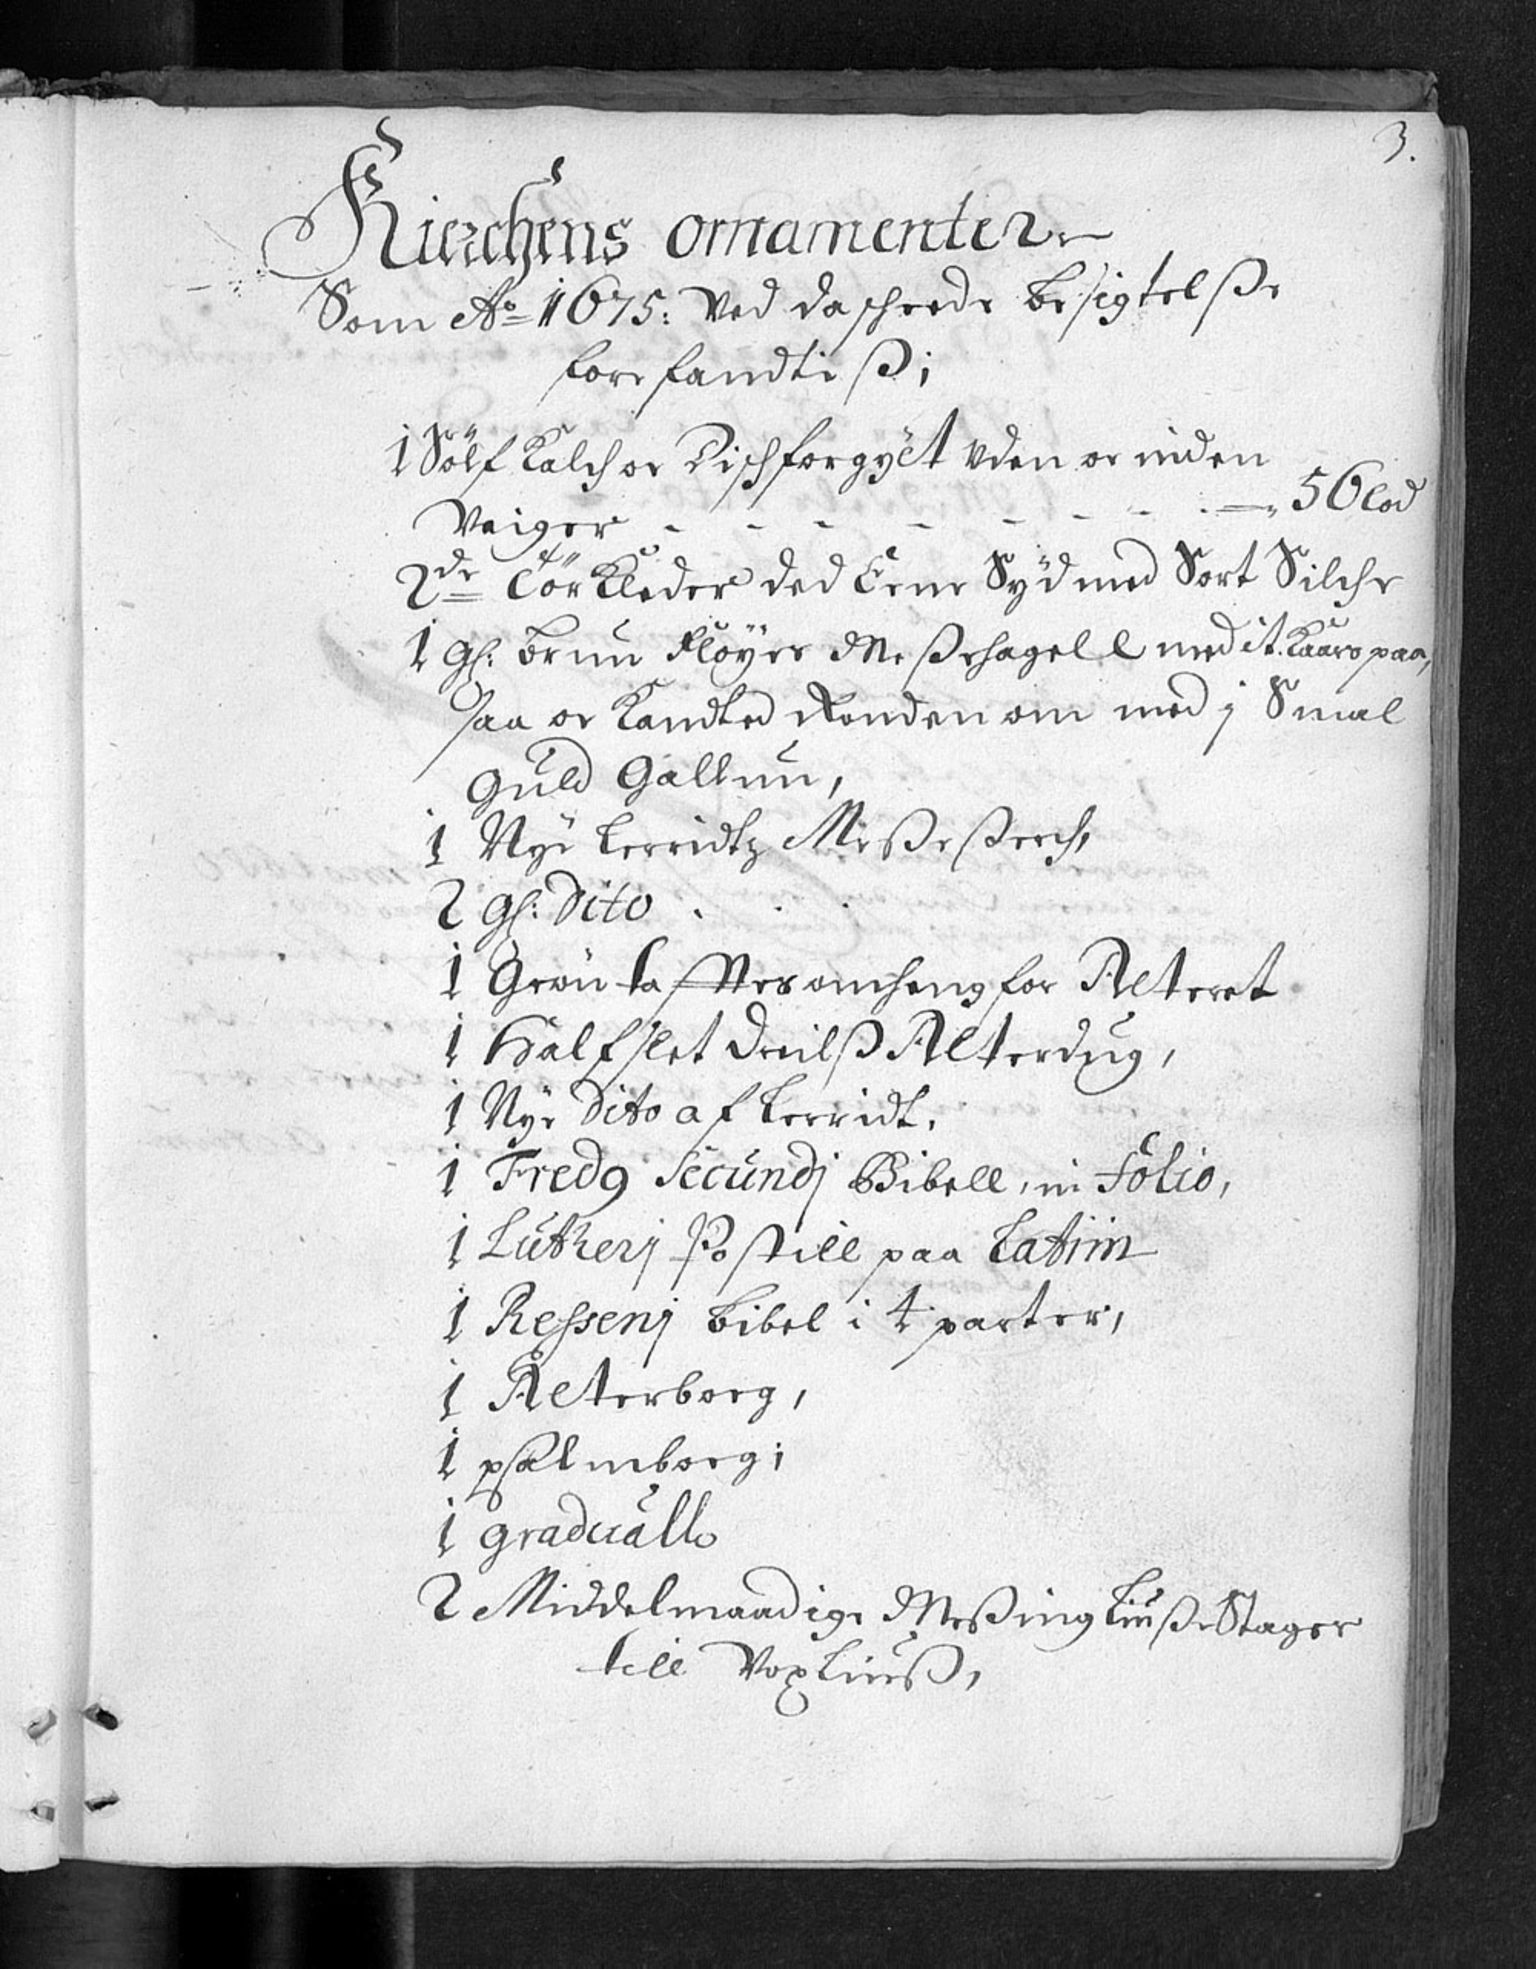 3.
Kierchens ornamenter
Som Ao 1675: Ved da scheede besigtelße
forefandtiß;
1 Sölf Kalch oc Disch forgylt Uden oc inden
Veiger - - - - - - - 56 lod
2de Tör Kleder ded Eene Syd med Sort Silche
1 gl: brun Fløyes Meßehagell med it Kaars paa,
saa oc Kandted Runden om med j Smal
Guld Gallun,
1 Nye lerridtz Meße Serch,
2 gl: Dito
1 Grön tafftes omheng for Alteret
1 Half slet Dreilß Alterdug,
1 Nye Dito af lerridt,
1 Fredg Secundj Bibell, in Folio,
1 Lutherj Postill paa Latiin
1 Ressenj bibel i 4 parter,
1 Alterboeg,
1 psalmboeg;
1 graduall
2 Middelmaadige Meßing LiußeStager
till VoxLiuß,